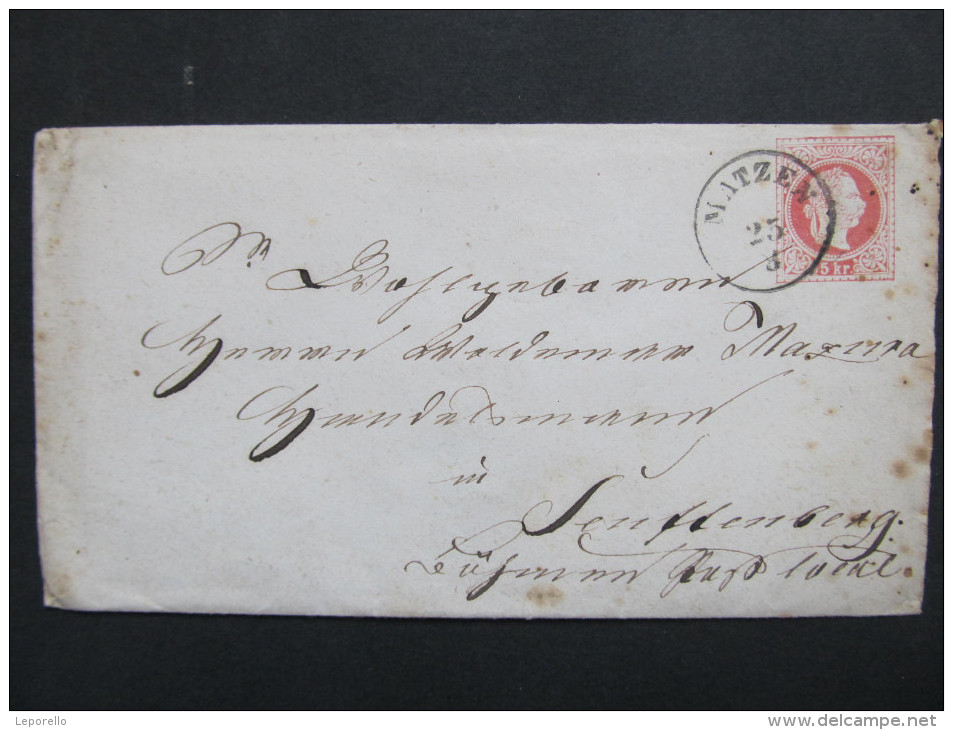 MATZEN
25
3
5 kr.
Sr Wohlgeboren
Herrn Waldemar Mazura
Handelsmann
in
Senftenberg.
Böhmen Post local
Leporello
www.delcampe.net